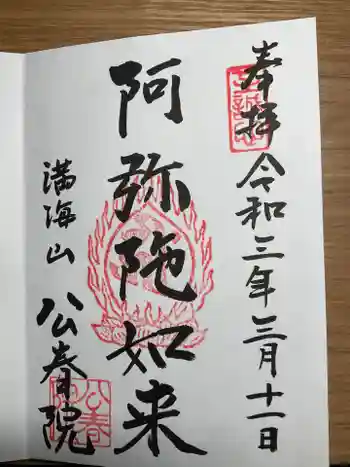 奉拝 令和三年三月十一日
阿弥陀如来
満海山 公春院